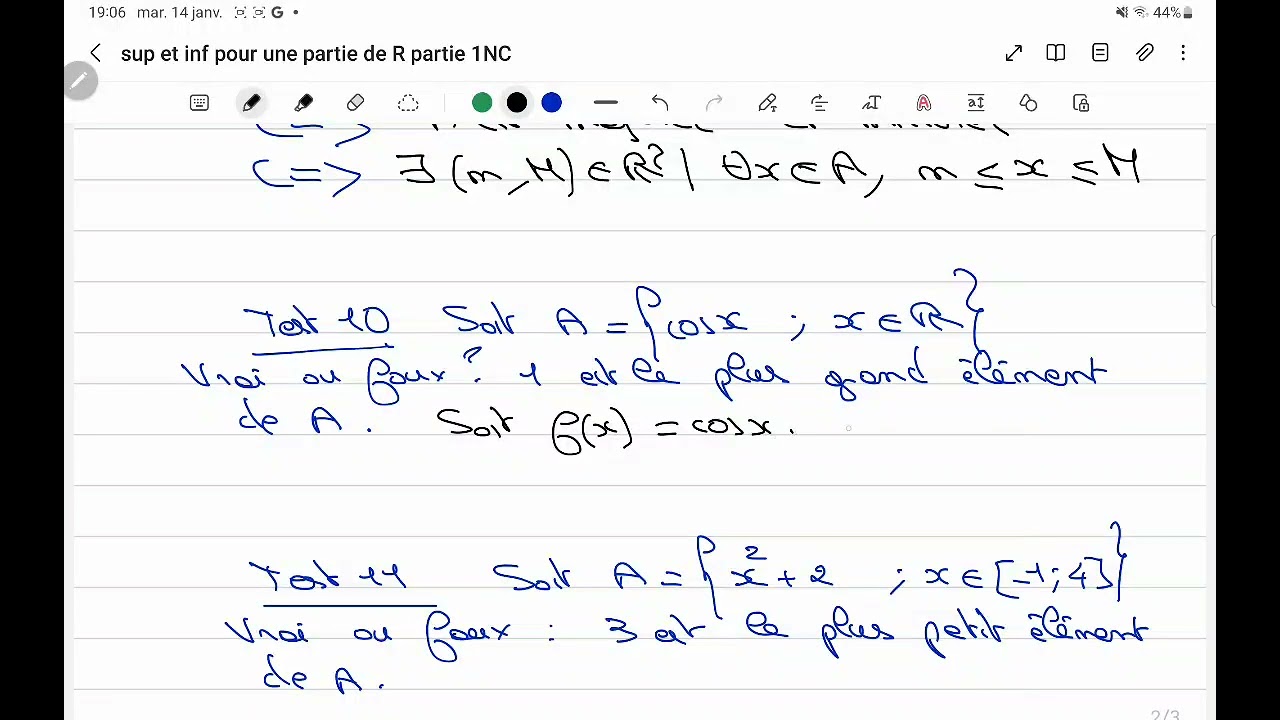 19:06 mar. 14 janv. G • 44%
sup et inf pour une partie de R partie 1NC
<=> ∃ (m, M) ∈ R² | ∀x ∈ A, m ≤ x ≤ M
Test 10 Soit A = { cosx ; x ∈ R }
Vrai ou faux ? 1 est le plus grand élément
de A. Soit f(x) = cosx.
Test 11 Soit A = { x² + 2 ; x ∈ [-1; 4] }
Vrai ou faux : 3 est le plus petit élément
de A.
2/3